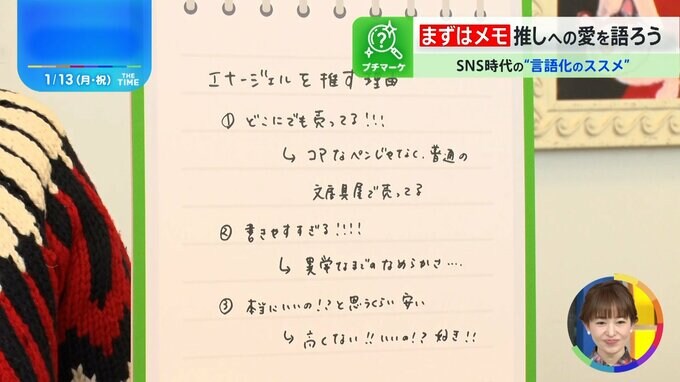 1/13(月・祝) THE TIME,
プチマーケ
まずはメモ 推しへの愛を語ろう
SNS時代の“言語化のススメ”
エナージェルを推す理由
① どこにでも売ってる!!!
↳ コアなペンじゃなく、普通の
文房具屋で売ってる
② 書きやすすぎる!!!!
↳ 異常なまでのなめらかさ....
③ 本当にいいの!?と思うくらい安い
↳ 高くない!!いいの!?好き!!